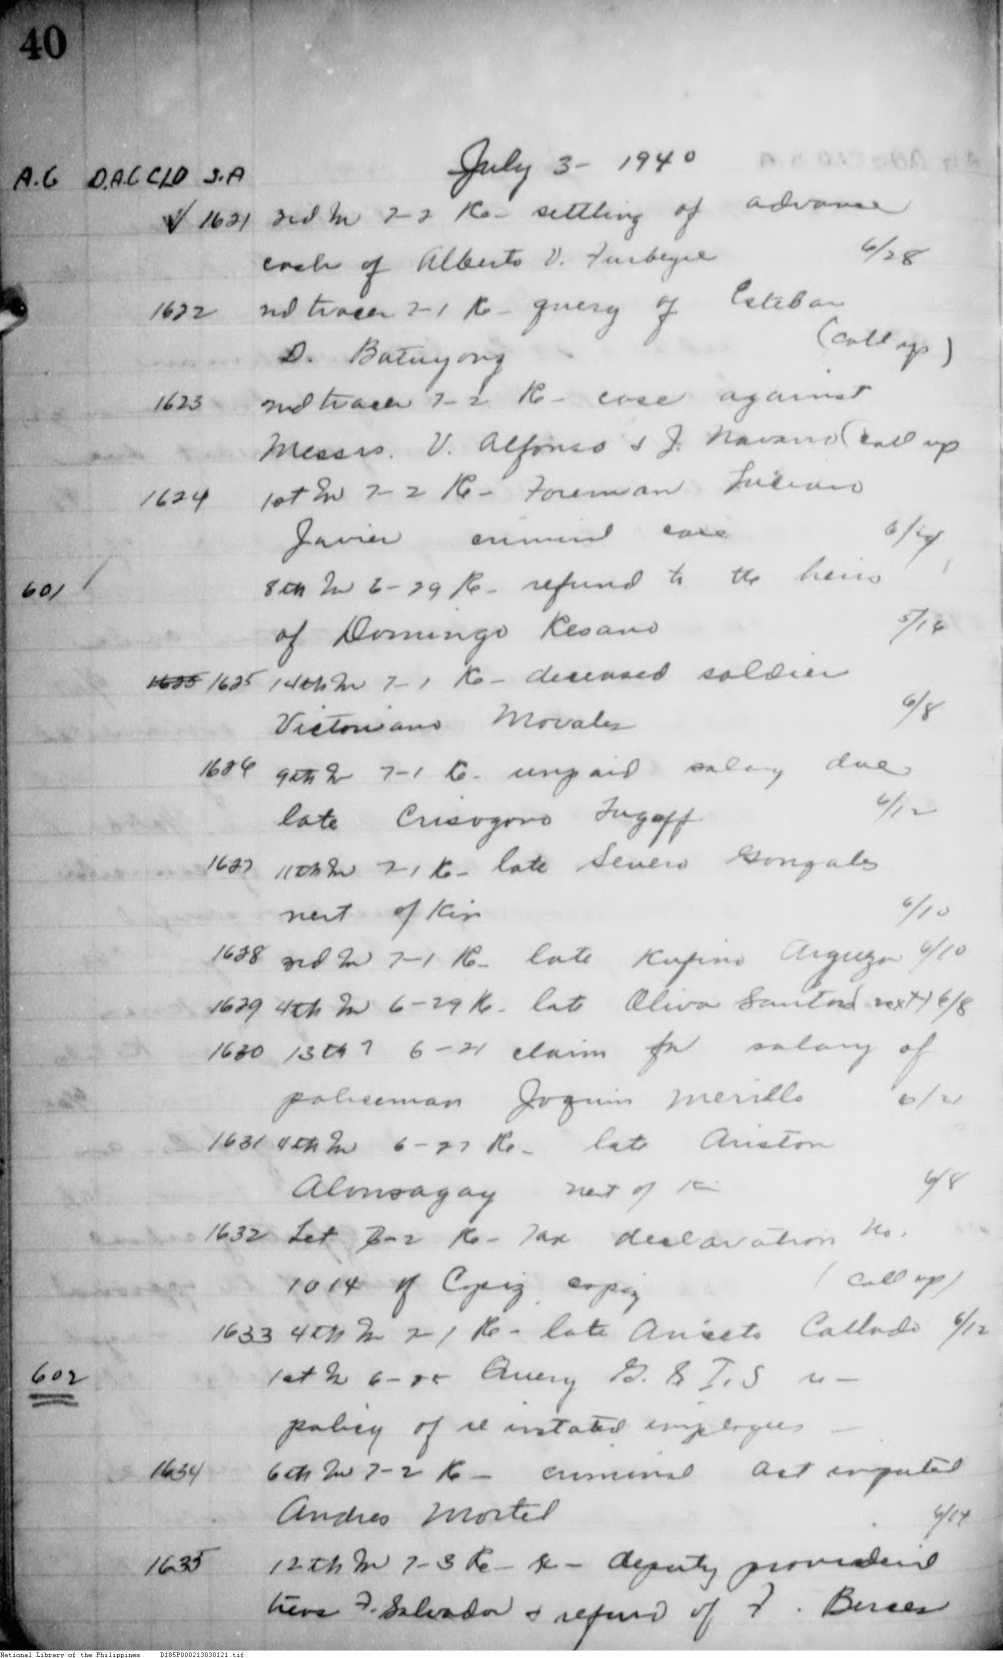 40
July 3- 1940
A.G D.A.G CLD S.A
1621 3rd In 7-2 Re- settling of advance
cash of Alberto V. 6/28
1622 2nd tracer 7-1 Re- query of Esteban
D. Batuyong (call up)
1623 2nd tracer 7-2 Re- case against
Messrs. V. Alfonso & J. Navarro (call up
1624 1st In 7-2 Re- Foreman Luciano
Javier criminal case
601 8th In 6-29 Re- refund to the heirs
of Domingo Resano 5/16
1625 1625 14th In 7-1 Re- deceased soldier
Victoriano Morales 6/8
1626 9th In 7-1 Re- unpaid salary due
late Crisogono 6/12
1627 11th In 7-1 Re- late Severo Gonzales
next of kin 6/10
1628 3rd In 7-1 Re- late Rufino 6/10
1629 4th In 6-29 Re- late Oliva Santos 6/8
1630 13th 6-21 claim for salary of
policeman Joquin Merillo
1631 4th In 6-27 Re- late Ariston
Alonsagay next of Ki 6/8
1632 Let 7-2 Re- Tax declaration No.
1014 of Capiz, capiz (call up)
1633 4th In 7-1 Re- late Aniceto Collado 6/12
602 1st In 6-25 Query G. S I. S re-
policy of re instated employees -
1634 6th In 7-2 Re- criminal act imputed
Andres Mortel 6/14
1635 12th In 7-3 Re- deputy provincial
F. Salvador & refund of F. Berces
National Library of the Philippines D185P000213030121.tif